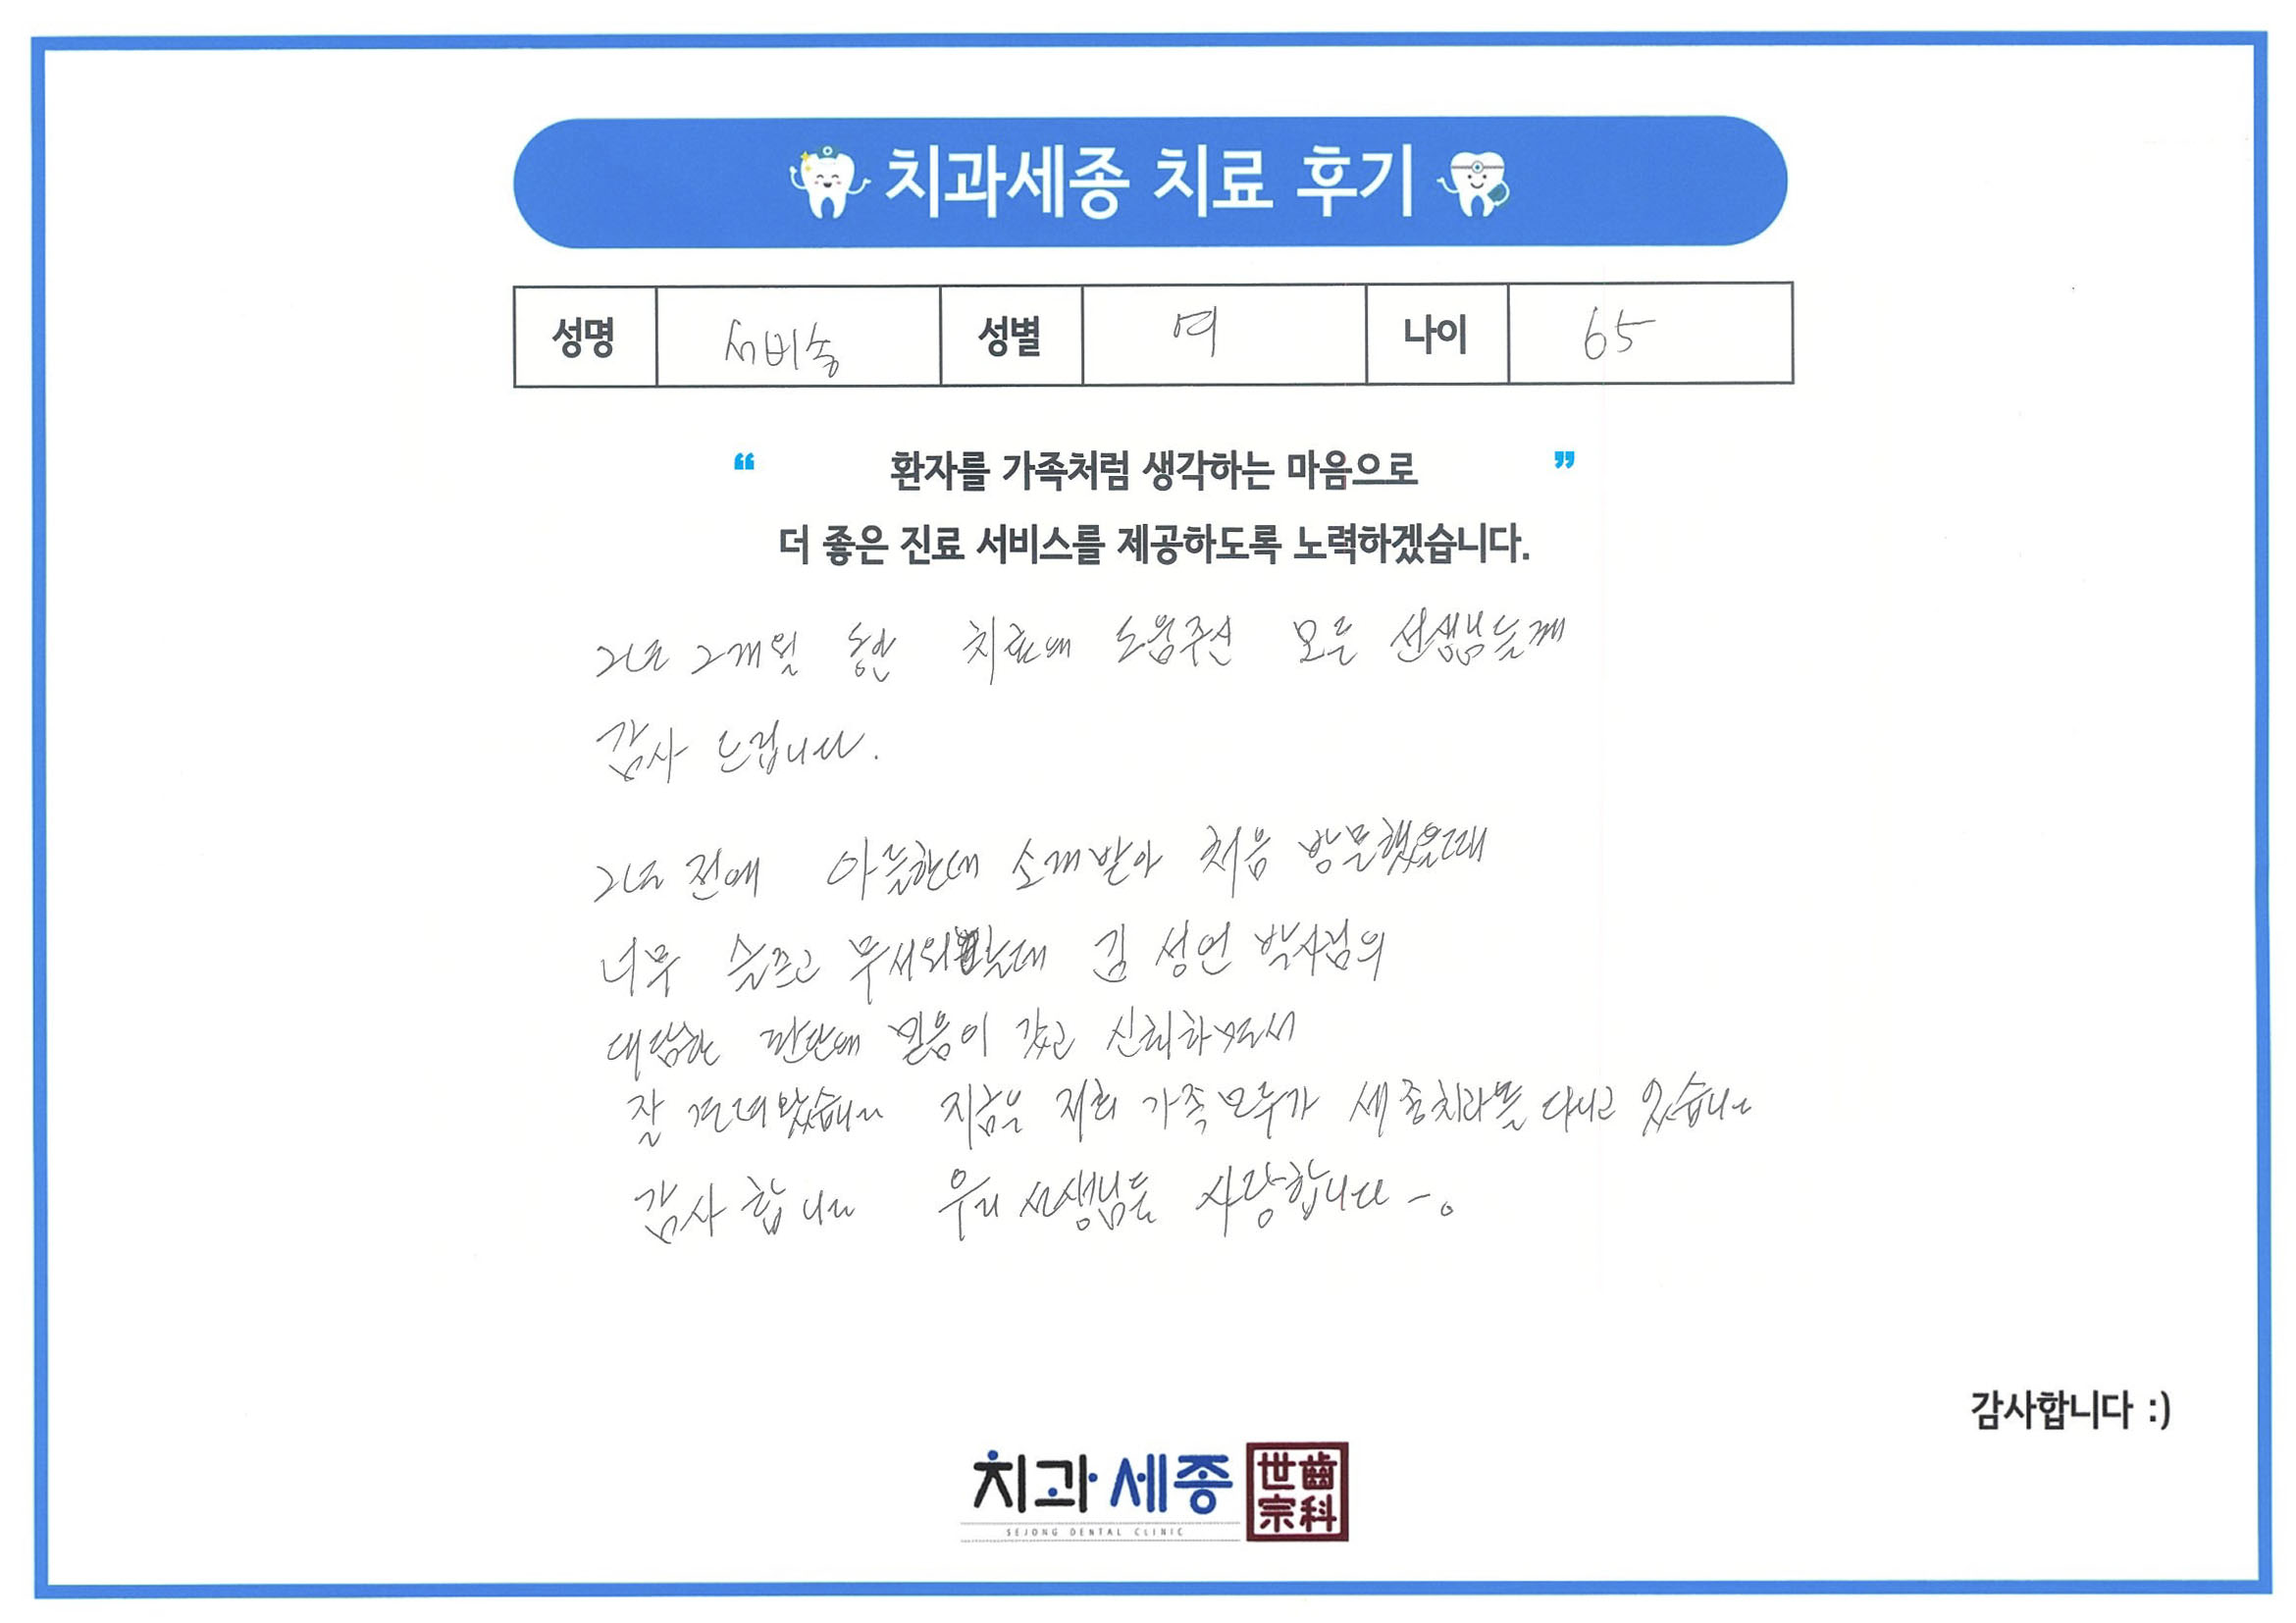 치과세종 치료 후기
성명 서비송 성별 여 나이 65
“ 환자를 가족처럼 생각하는 마음으로 ”
더 좋은 진료 서비스를 제공하도록 노력하겠습니다.
2년 2개월 동안 치료에 도움주신 모든 선생님들께
감사 드립니다.
2년 전에 아들한테 소개받아 처음 방문했을때
너무 슬프고 무서웠는데 김 성언 박사님의
대담한 판단에 믿음이 갔고 신뢰하면서
잘 견뎌왔습니다 지금은 저희 가족모두가 세종치과를 다니고 있습니다
감사합니다 우리 선생님들 사랑합니다~。
감사합니다 :)
치과세종
世齒
宗科
SEJONG DENTAL CLINIC